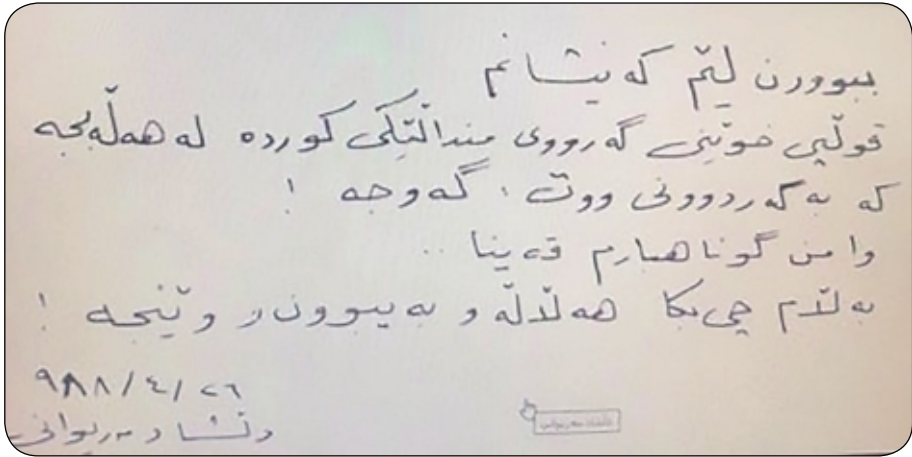 ببوورن لێم کە نیشانم
قوڵپی خوێنی گەرووی منداڵێکی کوردە لە هەڵەبجە
کە بە گەردوونی ووت، گەوجە !
وا من گوناهبارم قەینا ..
بەڵام چی بکا هەڵاڵە و بەیبوون و وێنجە !
٩٨٨/٤/٢٦
دڵشاد مەریوانی
دڵشاد مەریوانی